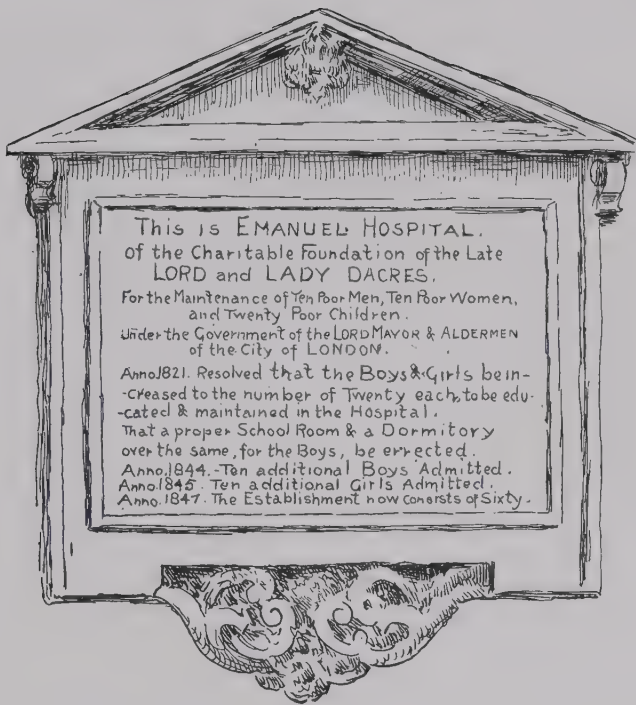 This is EMANUEL HOSPITAL.
of the Charitable Foundation of the Late
LORD and LADY DACRES.
For the Maintenance of Ten Poor Men, Ten Poor Women,
and Twenty Poor Children.
Under the Government of the LORD MAYOR & ALDERMEN
of the City of LONDON.
Anno.1821. Resolved that the Boys & Girls be in-
-creased to the number of Twenty each, to be edu-
-cated & maintained in the Hospital.
That a proper School Room & a Dormitory
over the same, for the Boys, be errected.
Anno.1844.-Ten additional Boys Admitted.
Anno.1845. Ten additional Girls Admitted.
Anno.1847. The Establishment now consists of Sixty.